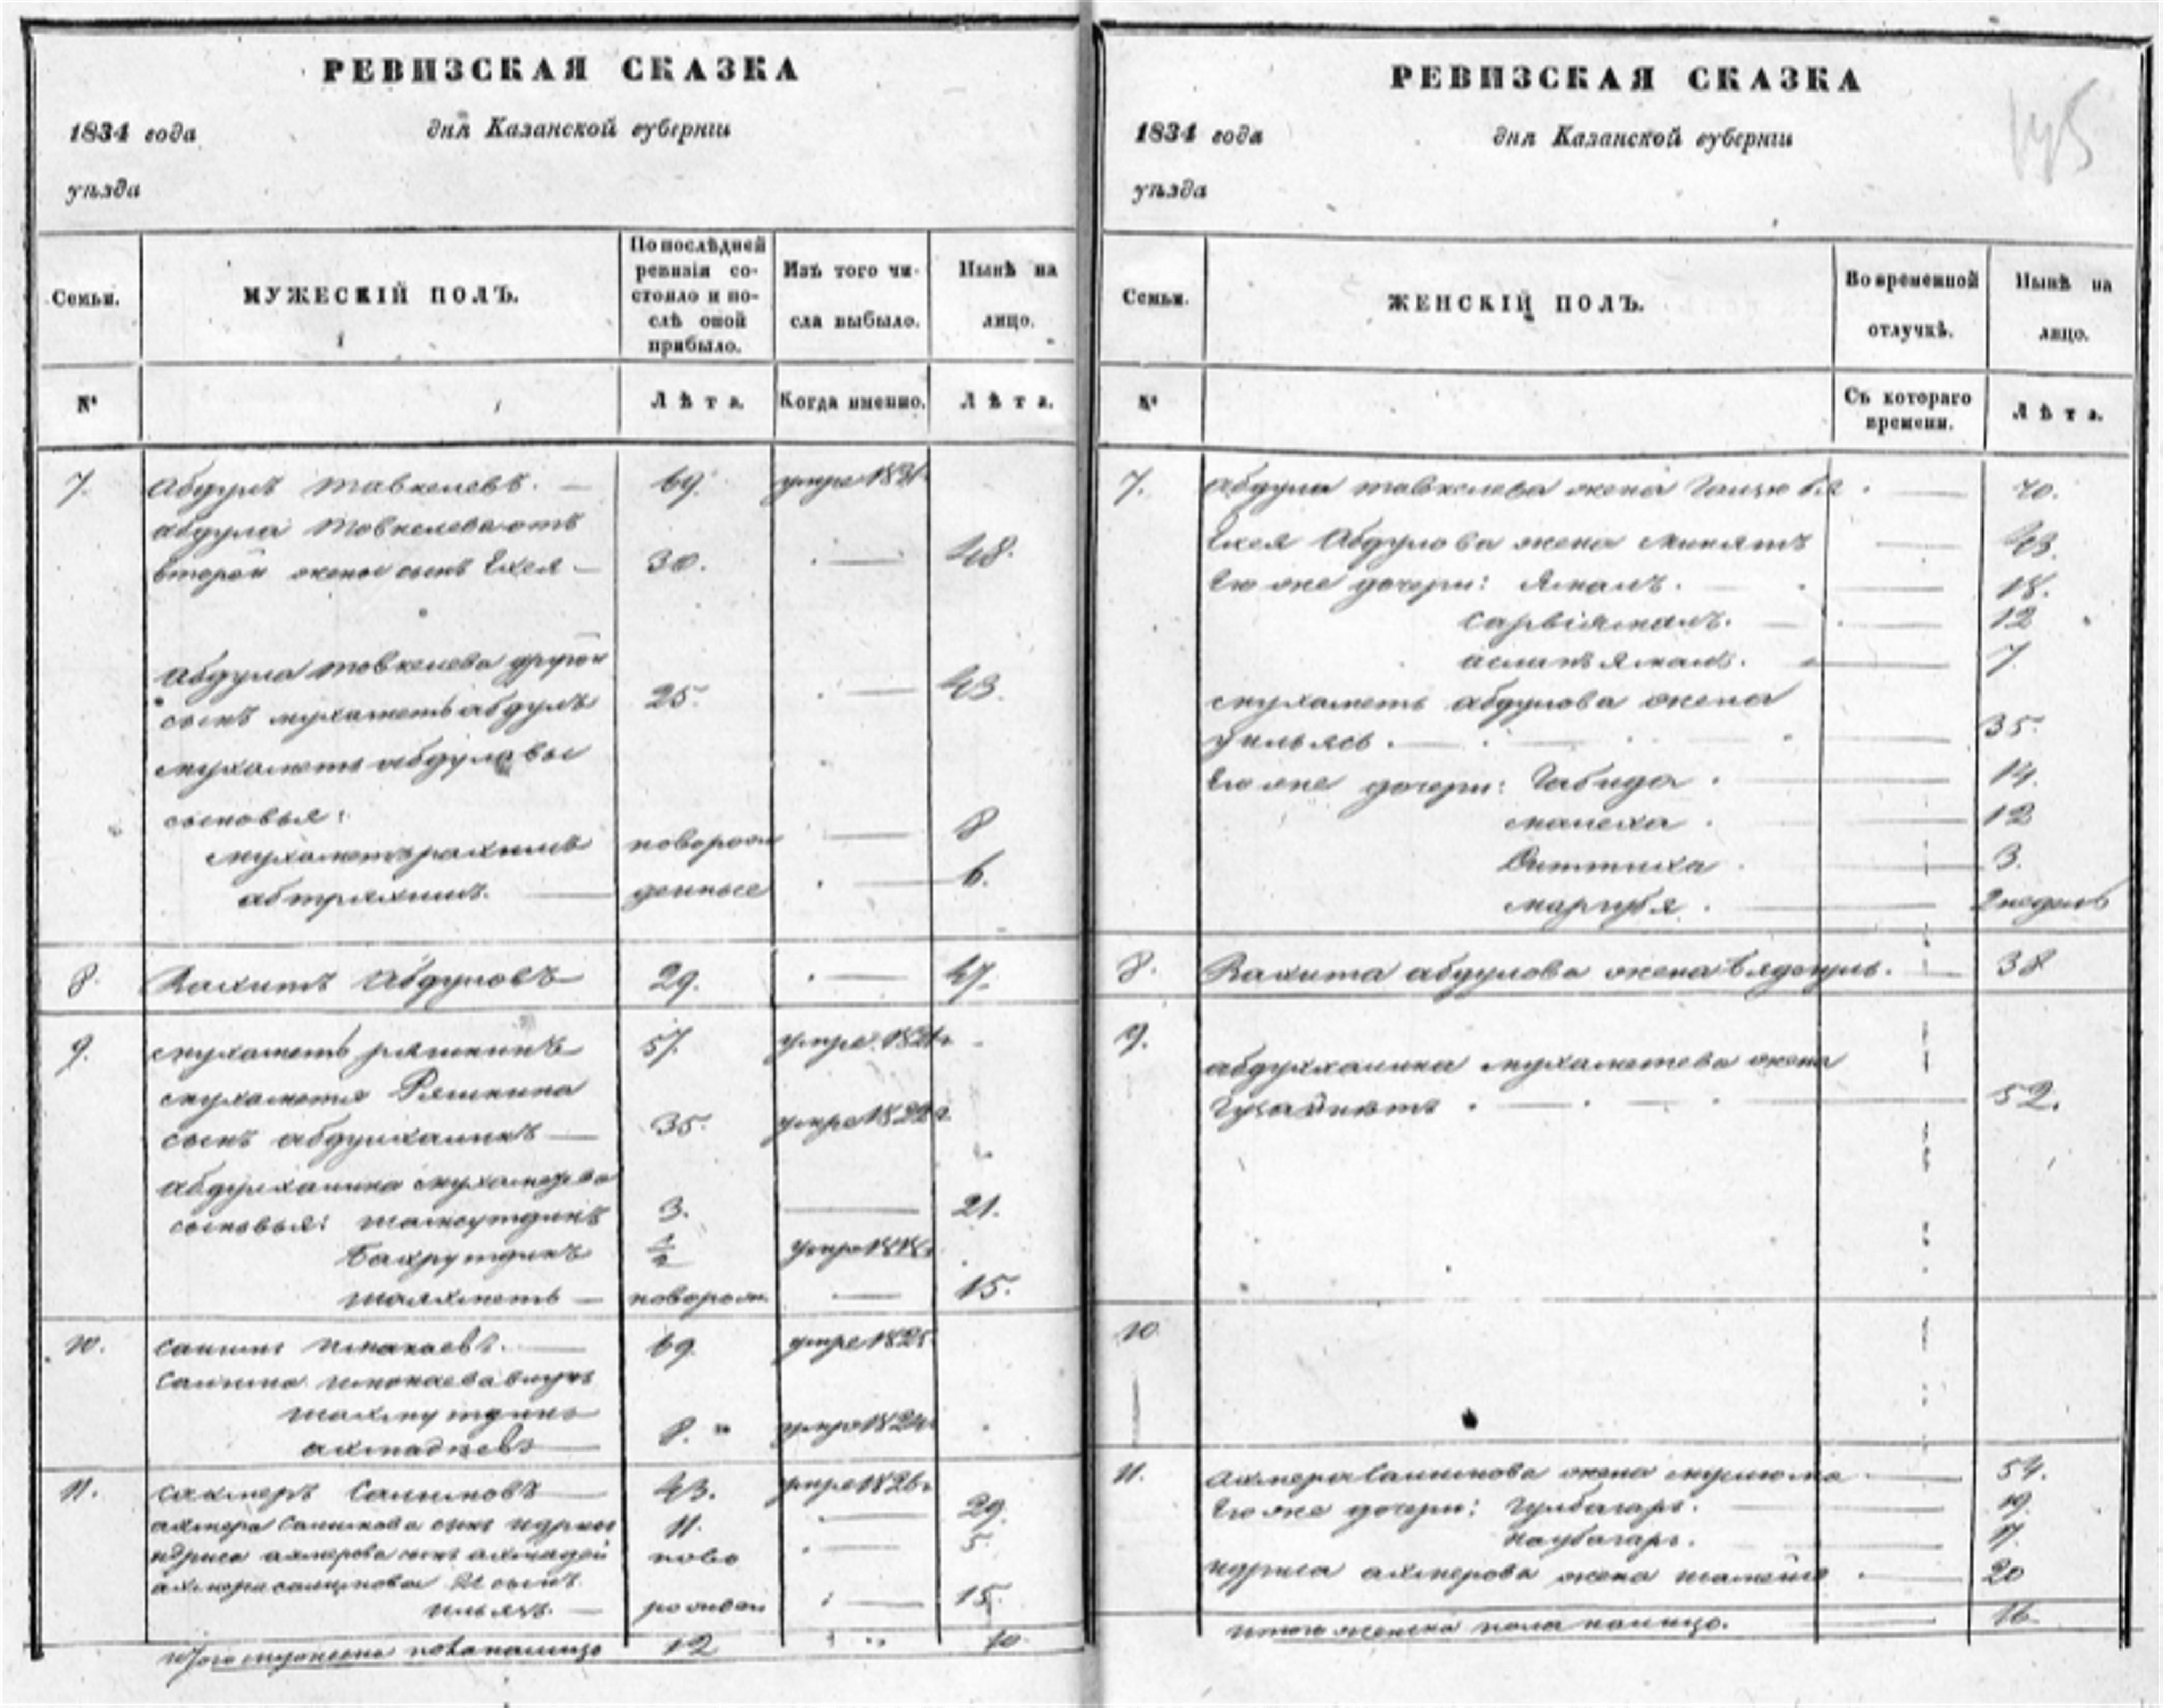 РЕВИЗСКАЯ СКАЗКА
1834 года дня Казанской губерніи
уѣзда
Семьи.
МУЖЕСКІЙ ПОЛЪ.
По послѣдней
ревизіи со-
стояло и по-
слѣ оной
прибыло.
Изъ того чи-
сла выбыло.
Нынѣ на
лицо.
№ Лѣта. Когда именно. Лѣта.
7. Абдулъ Тавкелевъ. 69. умре 1821.
Абдула Товкелева отъ
второй жены сынъ Ехея 30. 48.
Абдула Товкелева другой
сынъ мухаметь абдулъ 25. 43.
мухаметь абдуловы
сыновья:
мухаметьрахимъ новорож 8
абтряхимъ. денные 6.
8. Вахитъ Абдуловъ 29. 47.
9. мухаметь ряшкинъ 57. умре 1821г.
мухаметя Ряшкина
сынъ абдулхаликъ 35. умре 1822г.
абдулхалика мухаметева
сыновья: 3. 21.
Бахрутдинъ ½ умре 1818г.
шаяхметь новорож. 15.
10. Салимъ 69. умре 1825.
Салима внукъ
8. умре 1824г.
11. Салимовъ 43. умре 1826г.
ахмера Салимова сынъ идрисъ 11. 29.
идриса ахмерова сынъ ахмадей ново 5.
ахмера салимова 2й сынъ
ильязъ. рожден 15.
Итого мужеска пола налицо 12 10.
РЕВИЗСКАЯ СКАЗКА
1834 года дня Казанской губерніи
уѣзда
Семьи.
ЖЕНСКІЙ ПОЛЪ.
Во временной
отлучкѣ.
Нынѣ на
лицо.
№
Съ котораго
времени.
Лѣта.
7. Абдула тавкелева жена 70.
Ехея Абдулова жена Минятъ 43.
Его же дочери: Ямалъ. 18.
Сарвіямалъ. 12
7
мухаметь абдулова жена
35.
Его же дочери: Габида. 14.
малеха. 12
3.
маргубя. 2 недель
8. Вахита абдулова жена 38
9.
абдулхалика мухаметева жена
52.
10
11. Ахмера Салимова жена 54.
Его же дочери: Гулбагаръ. 19.
17.
идриса ахмерова жена 20
итого женска пола налицо. 16